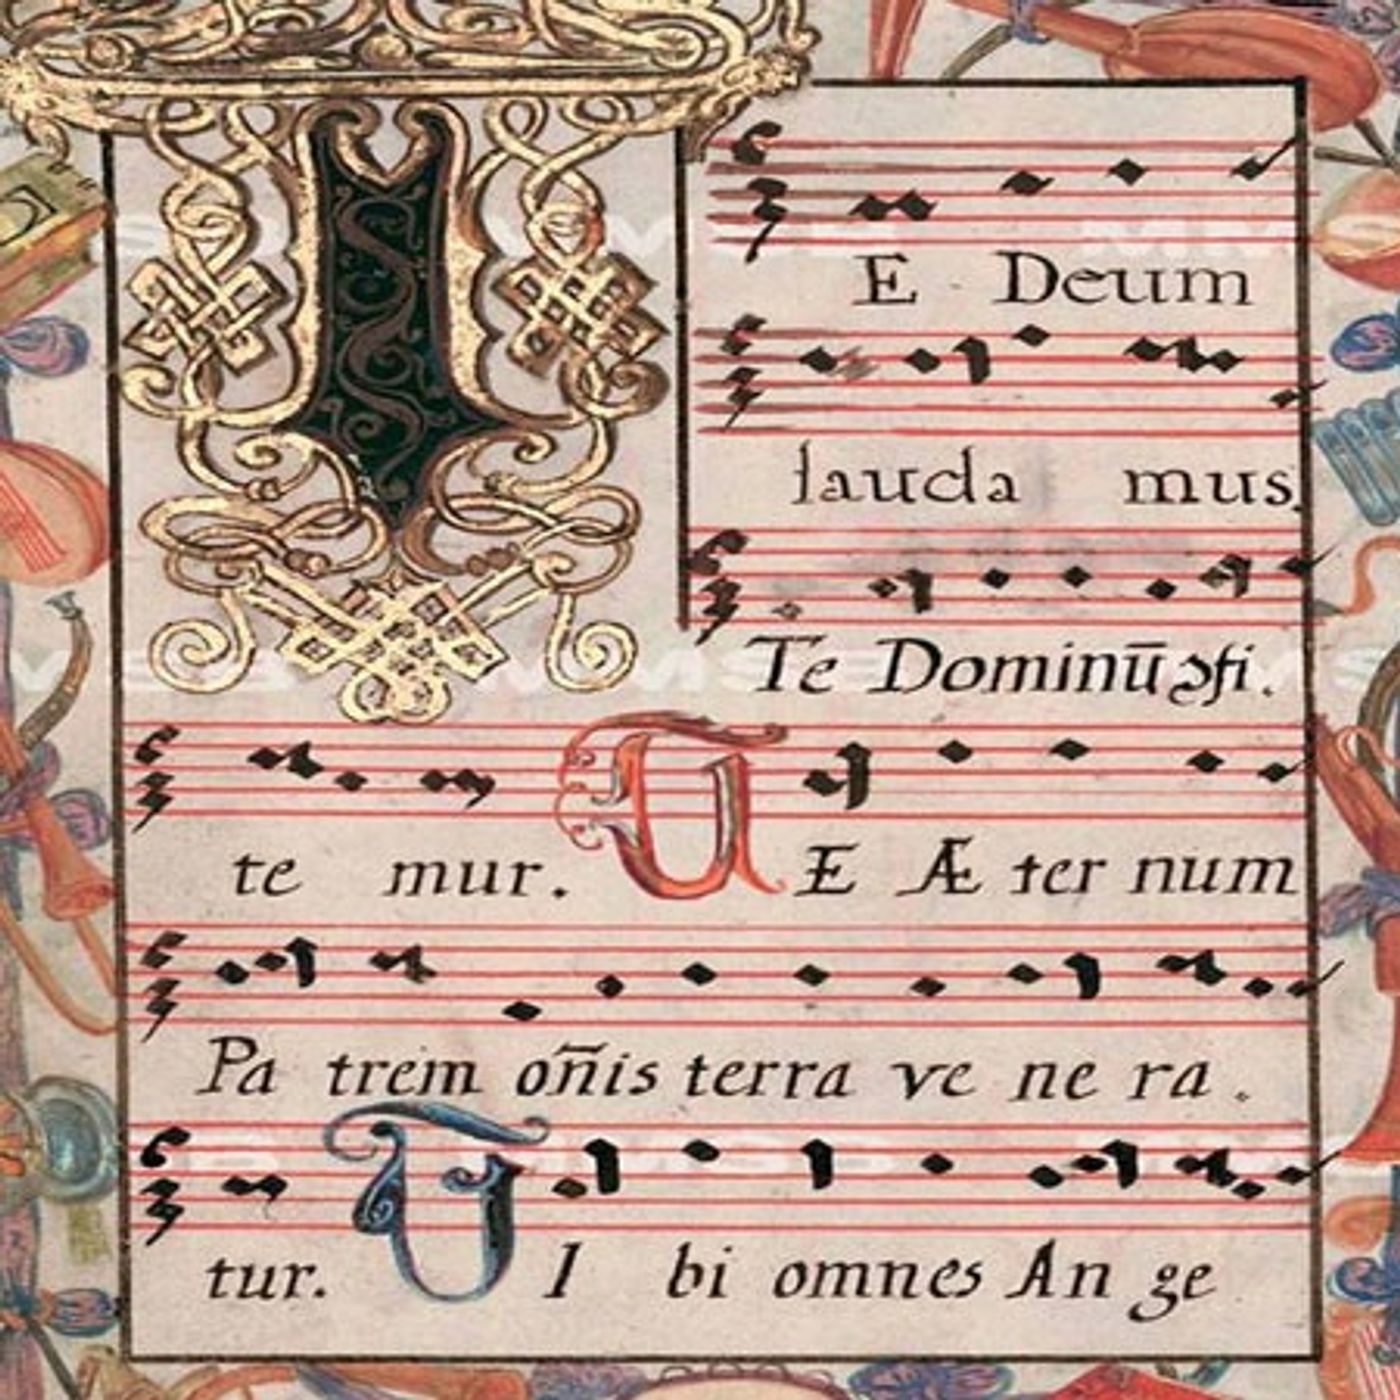 TE Deum
lauda mus
Te Dominū ꝯfi.
te mur. TE Æ ter num
Pa trem oñis terra ve ne ra.
tur. TI bi omnes An ge